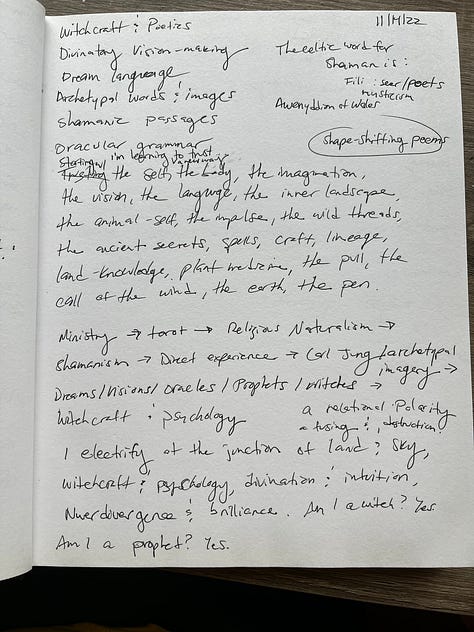 11/11/22
Witchcraft & Poetics
Divinatory Vision-making
Dream language
Archetypal words & images
Shamanic passages
Oracular grammar
The celtic word for
Shaman is:
Fili: seer/poets
mysticism
Awenyddion of Wales
Shape-shifting poems
Stating, I'm learning to trust
Trusting the self, the body, the imagination,
the vision, the language, the inner landscape,
the animal-self, the impulse, the wild threads,
the ancient secrets, spells, craft, lineage,
land-knowledge, plant medicine, the pull, the
call of the wind, the earth, the pen.
Ministry → tarot → Religious Naturalism →
Shamanism → Direct experience → Carl Jung/archetypal
imagery →
Dreams/Visions/Oracles/Prophets/Witches →
Witchcraft & psychology
a relational Polarity
a fusing &
I electrify at the junction of land & sky,
witchcraft & psychology, divination & intuition,
Nuerdovergence & brilliance. Am I a witch? Yes.
Am I a prophet? Yes.